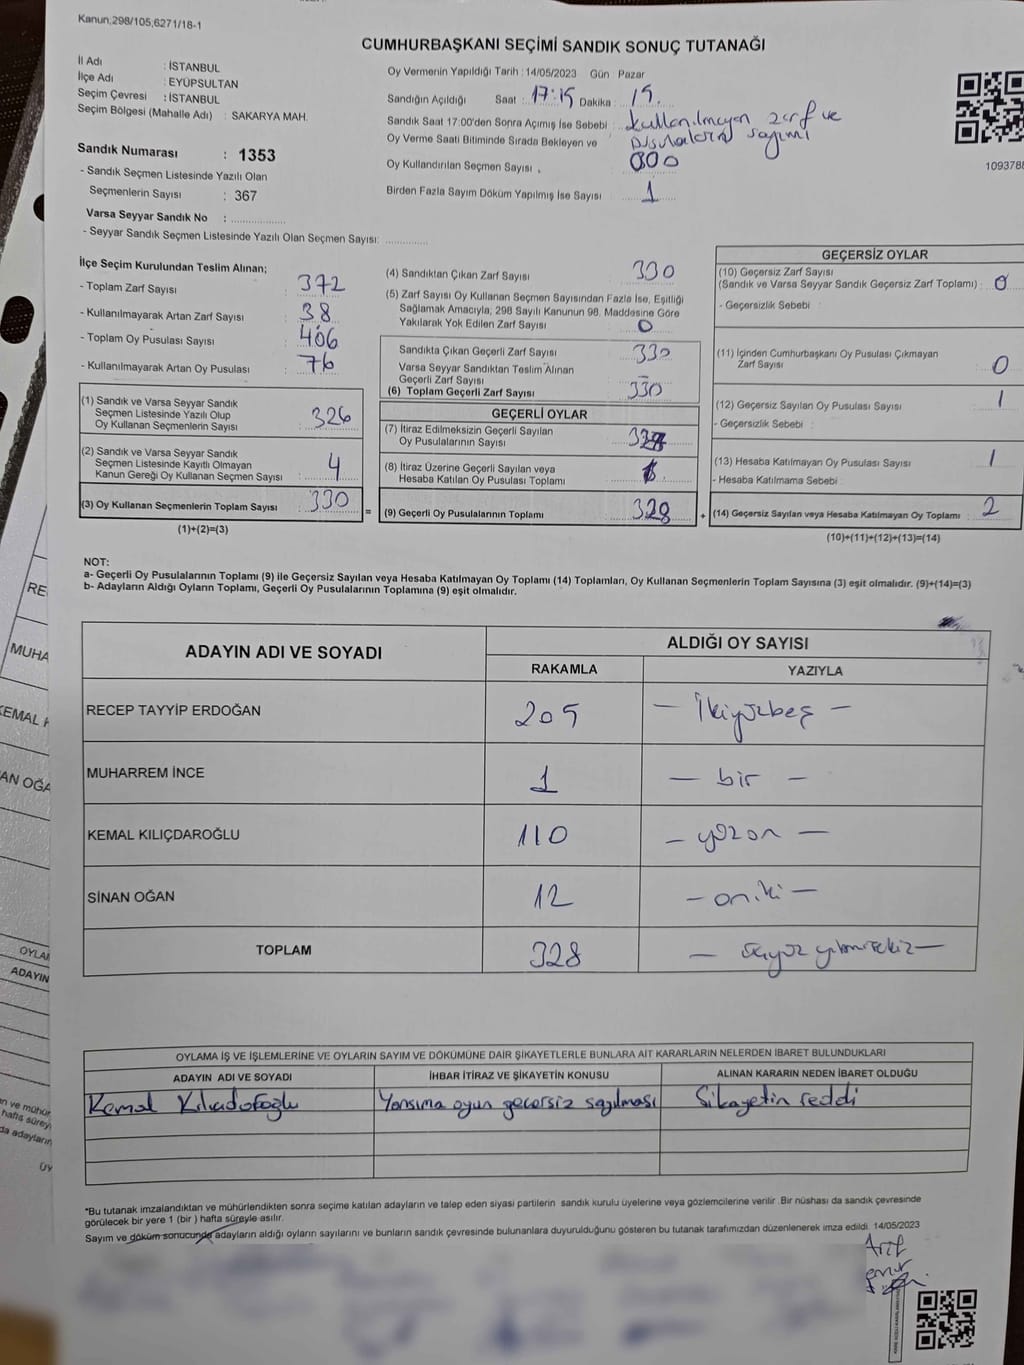 Kanun;298/105,6271/18-1
CUMHURBAŞKANI SEÇİMİ SANDIK SONUÇ TUTANAĞI
İl Adı : İSTANBUL
İlçe Adı : EYÜPSULTAN
Seçim Çevresi : İSTANBUL
Seçim Bölgesi (Mahalle Adı) : SAKARYA MAH.
Sandık Numarası : 1353
- Sandık Seçmen Listesinde Yazılı Olan
Seçmenlerin Sayısı : 367
Varsa Seyyar Sandık No : ..............
- Seyyar Sandık Seçmen Listesinde Yazılı Olan Seçmen Sayısı: ............
Oy Vermenin Yapıldığı Tarih : 14/05/2023 Gün Pazar
Sandığın Açıldığı Saat : 17:15 Dakika : 15.
Sandık Saat 17:00'den Sonra Açımış İse Sebebi : kullanılmayan zarf ve
Oy Verme Saati Bitiminde Sırada Bekleyen ve pusulaların sayımı
Oy Kullandırılan Seçmen Sayısı . 000
Birden Fazla Sayım Döküm Yapılmış İse Sayısı 1
1093788
İlçe Seçim Kurulundan Teslim Alınan;
- Toplam Zarf Sayısı 372
- Kullanılmayarak Artan Zarf Sayısı 38
- Toplam Oy Pusulası Sayısı 406
- Kullanılmayarak Artan Oy Pusulası 76
(1) Sandık ve Varsa Seyyar Sandık
Seçmen Listesinde Yazılı Olup
Oy Kullanan Seçmenlerin Sayısı 326
(2) Sandık ve Varsa Seyyar Sandık
Seçmen Listesinde Kayıtlı Olmayan
Kanun Gereği Oy Kullanan Seçmen Sayısı : 4
(3) Oy Kullanan Seçmenlerin Toplam Sayısı 330
(1)+(2)=(3)
(4) Sandıktan Çıkan Zarf Sayısı 330
(5) Zarf Sayısı Oy Kullanan Seçmen Sayısından Fazla İse, Eşitliği
Sağlamak Amacıyla, 298 Sayılı Kanunun 98. Maddesine Göre
Yakılarak Yok Edilen Zarf Sayısı 0
Sandıkta Çıkan Geçerli Zarf Sayısı 330
Varsa Seyyar Sandıktan Teslim Alınan
Geçerli Zarf Sayısı –
(6) Toplam Geçerli Zarf Sayısı) 330
GEÇERLİ OYLAR
(7) İtiraz Edilmeksizin Geçerli Sayılan
Oy Pusulalarının Sayısı
(8) İtiraz Üzerine Geçerli Sayılan veya
Hesaba Katılan Oy Pusulası Toplamı
(9) Geçerli Oy Pusulalarının Toplamı 328
GEÇERSİZ OYLAR
(10) Geçersiz Zarf Sayısı
(Sandık ve Varsa Seyyar Sandık Geçersiz Zarf Toplamı) : 0
- Geçersizlik Sebebi :
(11) İçinden Cumhurbaşkanı Oy Pusulası Çıkmayan
Zarf Sayısı 0
(12) Geçersiz Sayılan Oy Pusulası Sayısı 1
- Geçersizlik Sebebi :
(13) Hesaba Katılmayan Oy Pusulası Sayısı 1
- Hesaba Katılmama Sebebi :
(14) Geçersiz Sayılan veya Hesaba Katılmayan Oy Toplamı : 2
(10)+(11)+(12)+(13)=(14)
NOT:
a- Geçerli Oy Pusulalarının Toplamı (9) ile Geçersiz Sayılan veya Hesaba Katılmayan Oy Toplamı (14) Toplamları, Oy Kullanan Seçmenlerin Toplam Sayısına (3) eşit olmalıdır. (9)+(14)=(3)
b- Adayların Aldığı Oyların Toplamı, Geçerli Oy Pusulalarının Toplamına (9) eşit olmalıdır.
ADAYIN ADI VE SOYADI ALDIĞI OY SAYISI
RAKAMLA YAZIYLA
RECEP TAYYİP ERDOĞAN 205 – İkiyüzbeş –
MUHARREM İNCE 1 – bir –
KEMAL KILIÇDAROĞLU 110 – yüzon –
SİNAN OĞAN 12 – oniki –
TOPLAM 328 – üçyüz yirmisekiz –
OYLAMA İŞ VE İŞLEMLERİNE VE OYLARIN SAYIM VE DÖKÜMÜNE DAİR ŞİKAYETLERLE BUNLARA AİT KARARLARIN NELERDEN İBARET BULUNDUKLARI
ADAYIN ADI VE SOYADI İHBAR İTİRAZ VE ŞİKAYETİN KONUSU ALINAN KARARIN NEDEN İBARET OLDUĞU
Kemal Kılıcdaroğlu Yansıma oyun gecersiz sayılması Sikayetin reddi
*Bu tutanak imzalandıktan ve mühürlendikten sonra seçime katılan adayların ve talep eden siyasi partilerin sandık kurulu üyelerine veya gözlemcilerine verilir .Bir nüshası da sandık çevresinde
görülecek bir yere 1 (bir ) hafta süreyle asılır.
Sayım ve döküm sonucunda adayların aldığı oyların sayılarını ve bunların sandık çevresinde bulunanlara duyurulduğunu gösteren bu tutanak tarafımızdan düzenlenerek imza edildi. 14/05/2023
Arif
RE
MUHA
KEMAL K
AN OĞA
OYLAM
ADAYIN